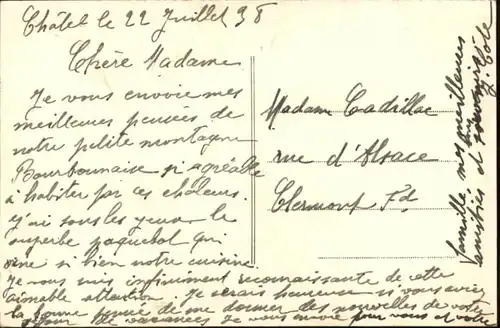 Châtel le 22 Juillet 38
Chère Madame
Je vous envoie mes
meilleures pensées de
notre petite montagne
Bourbonnaise si agréable
à habiter par ces chaleurs.
J'ai sous les yeux le
superbe paquebot qui
orne si bien notre cuisine.
Je vous suis infiniment reconnaissante de cette
aimable attention. Je serais heureuse si vous aviez
la bonne pensée de me donner des nouvelles de votre
séjour de vacances Je vous envoie pour vous et votre
famille mes meilleures
amitiés et souvenirs
Madame Cadillac
rue d'Alsace
Clermont Fd